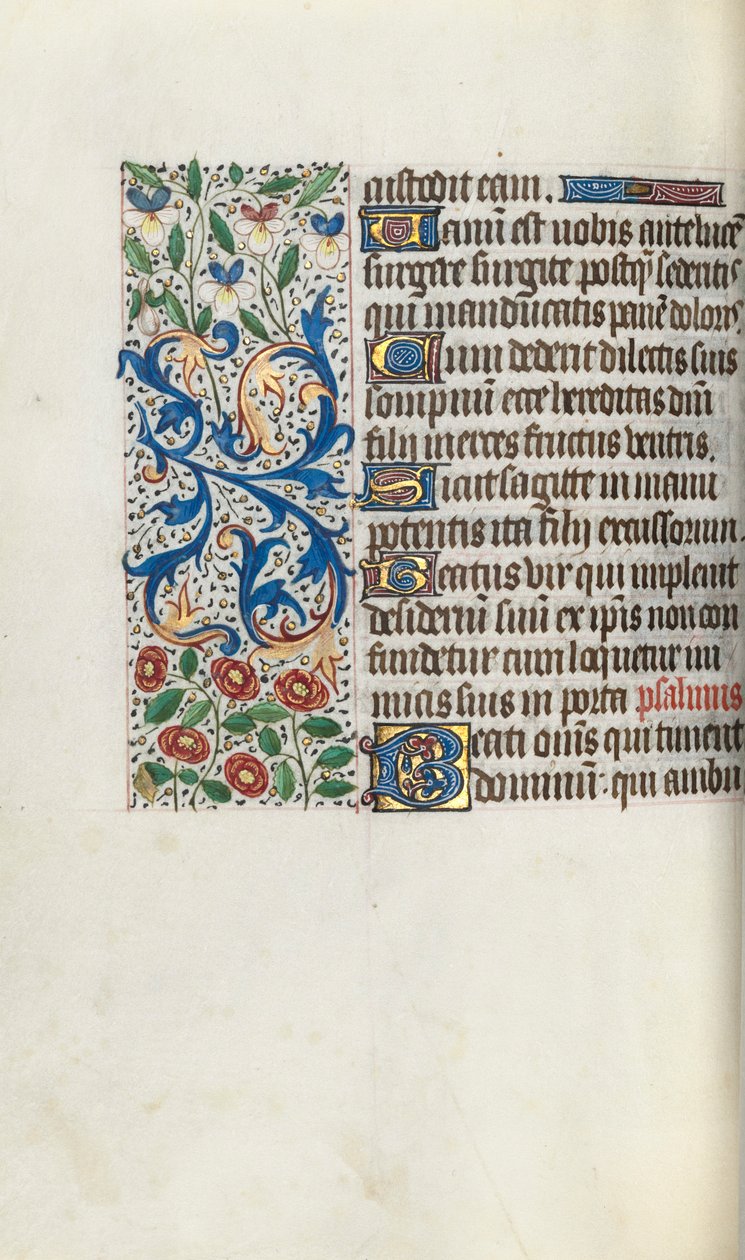 custodit eam.
Uanū est uobis ante lucē
surgere surgite postq̄ sedentis
qui manducatis panē doloris
Cum dederit dilectis suis
sompnuū ecce hereditas dn̄i
filij merces fructus ventris.
Sicut sagitte in manu
potentis ita filij excussorum.
Beatus vir qui impleuit
desideriū suū ex ip̄is non con
fundetur cum loquetur ini
micis suis in porta psalmus
Beati om̄s qui timent
dominum: qui ambu